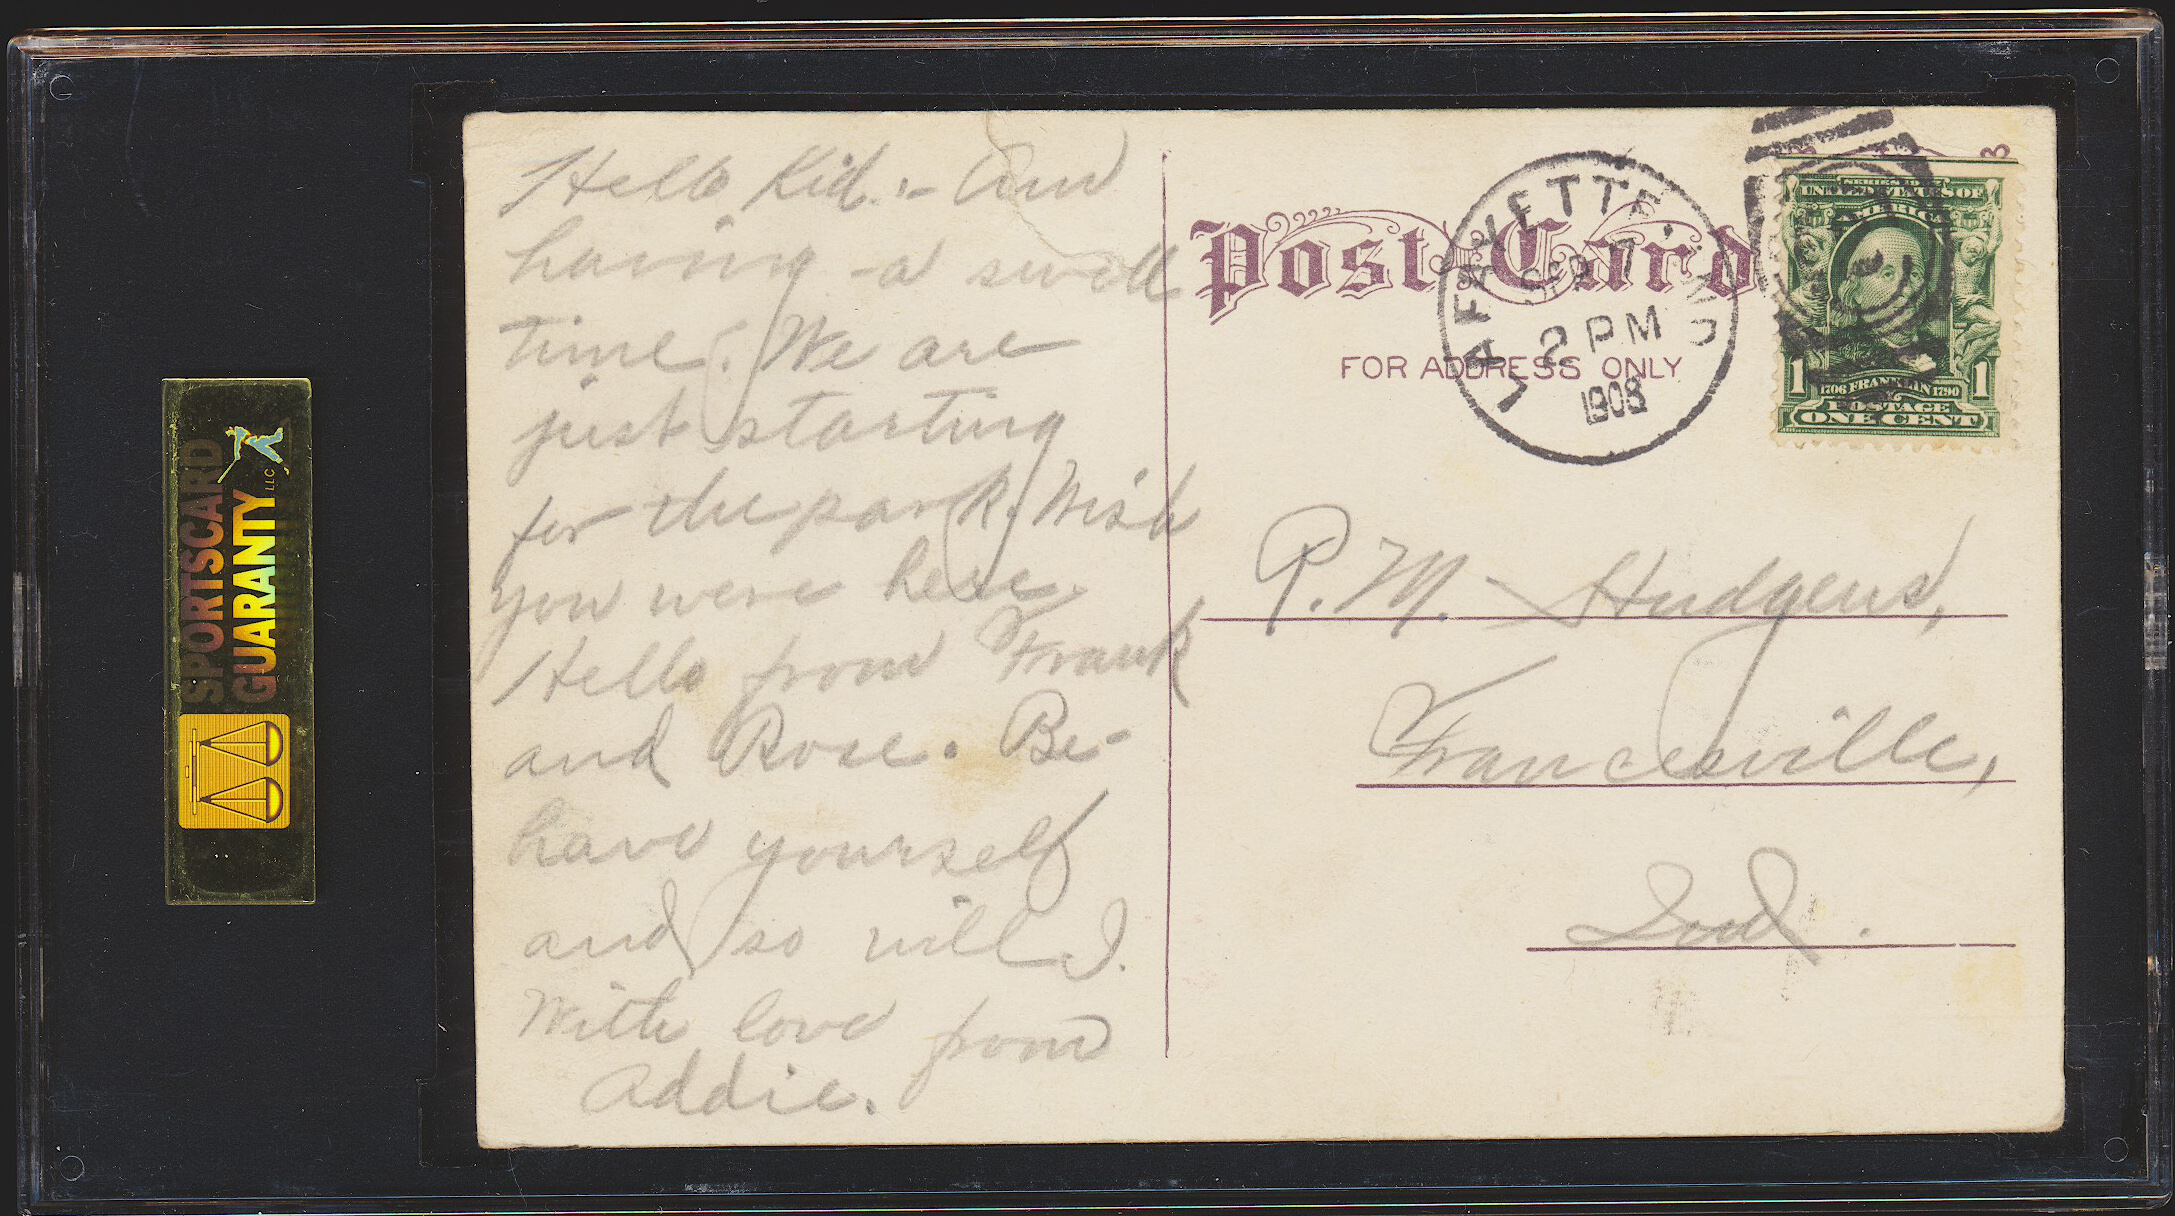 Hello Kid:- Am
having a swell
time. We are
just starting
for the park. Wish
you were here.
Hello from Frank
and Rose. Be-
have yourself
and so will I.
With love from
Addie.
Post Card
FOR ADDRESS ONLY
LAFAYETTE, IND
SEP 7
2 PM
1908
SERIES 1902
UNITED STATES OF
AMERICA
1706 FRANKLIN 1790
1 POSTAGE 1
ONE CENT
P. M. Hudgens,
Francesville,
Ind.
SPORTSCARD
GUARANTY LLC